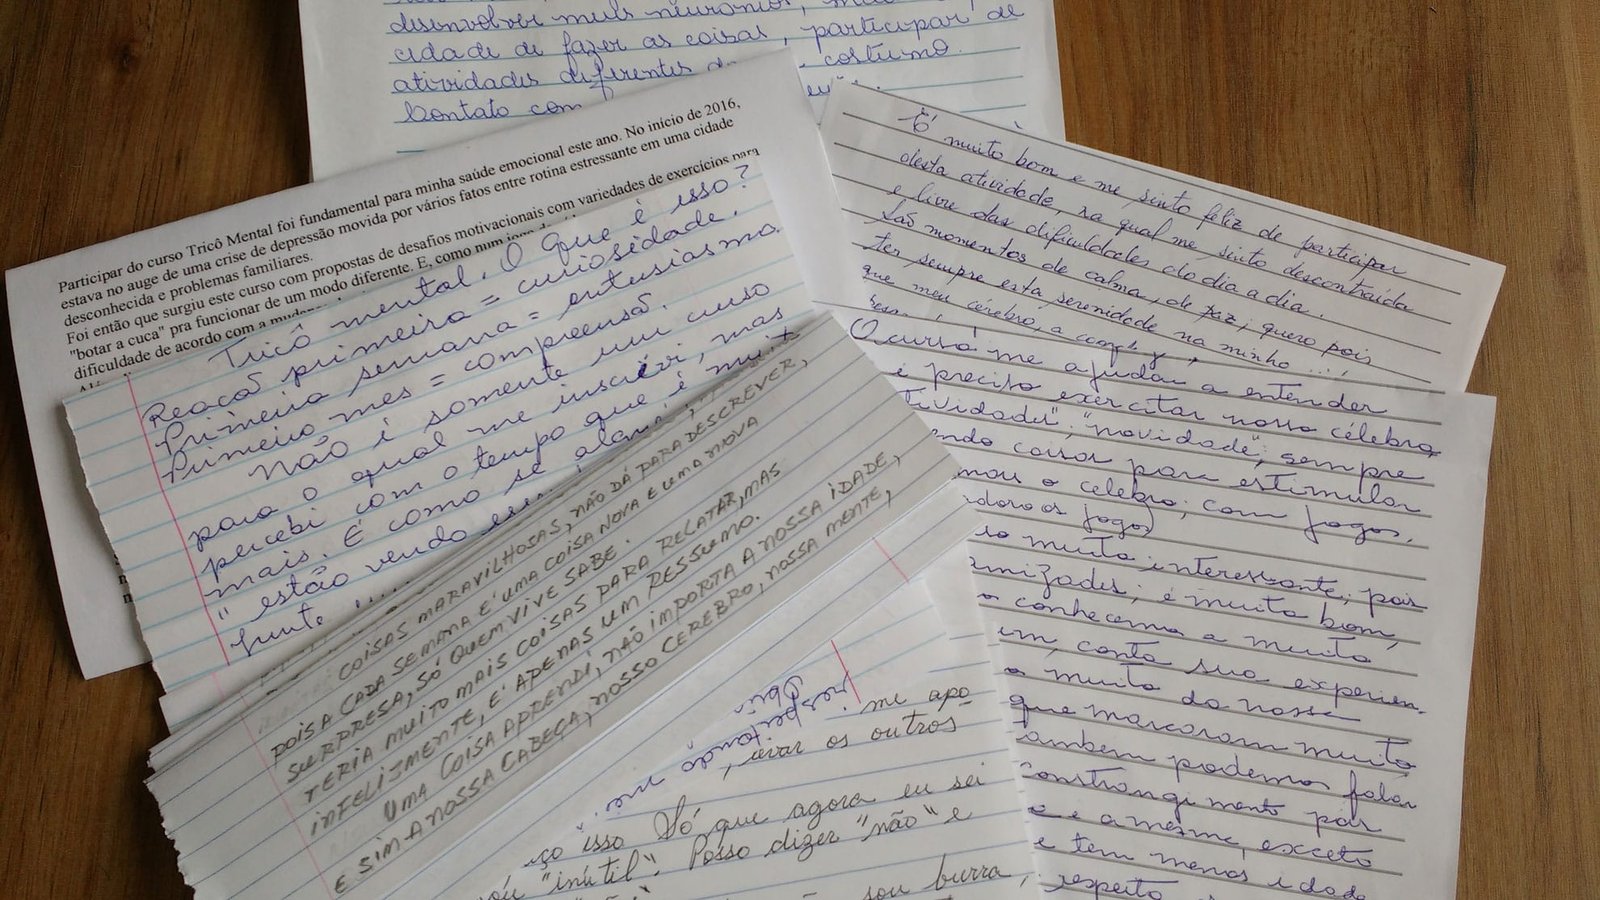 desenvolver meus neuronios,
cidade de fazer as coisas, participar de
atividades diferentes costumo.
Contato com
Participar do curso Tricô Mental foi fundamental para minha saúde emocional este ano. No início de 2016,
estava no auge de uma crise de depressão movida por vários fatos entre rotina estressante em uma cidade
desconhecida e problemas familiares.
Foi então que surgiu este curso com propostas de desafios motivacionais com variedades de exercícios para
"botar a cuca" pra funcionar de um modo diferente. E, como num jogo
dificuldade de acordo com a
Tricô mental. O que é isso?
Reacão primeira = curiosidade.
Primeira semana = entusiasmo.
Primeiro mes = compreensão.
Não é somente um curso
para o qual me inscrevi, mas
percebi com o tempo que é muito
mais. É como se
"estão vendo
É muito bom e me sinto feliz de participar
desta atividade, na qual me sinto descontraída
e livre das dificuldades do dia a dia.
São momentos de calma, de paz; quero pois
ter sempre esta serenidade na minha ....,
que meu cérebro, a
O curso me ajudou a entender
é preciso exercitar nosso célebro,
"novidade", sempre
coisas para estimular
o celebro, com jogos.
jogos)
muito interessante, pois
amizades, é muito bom,
conhecemos a muito
conta sua experien-
muito da nossa
que marcaram muito,
também podemos falar
constrangimento por
e a mesma, exceto
e tem menos idade
respeito
COISAS MARAVILHOSAS, NÃO DÁ PARA DESCREVER,
POIS A CADA SEMANA É UMA COISA NOVA E UMA NOVA
SURPRESA, SÓ QUEM VIVE SABE.
TERIA MUITO MAIS COISAS PARA RELATAR, MAS
INFELIZMENTE, É APENAS UM RESSUMO.
UMA COISA APRENDI, NÃO IMPORTA A NOSSA IDADE,
E SIM A NOSSA CABEÇA, NOSSO CEREBRO, NOSSA MENTE,
me apo
os outros
isso Só que agora eu sei
"inútil". Posso dizer "não" e
sou burra,